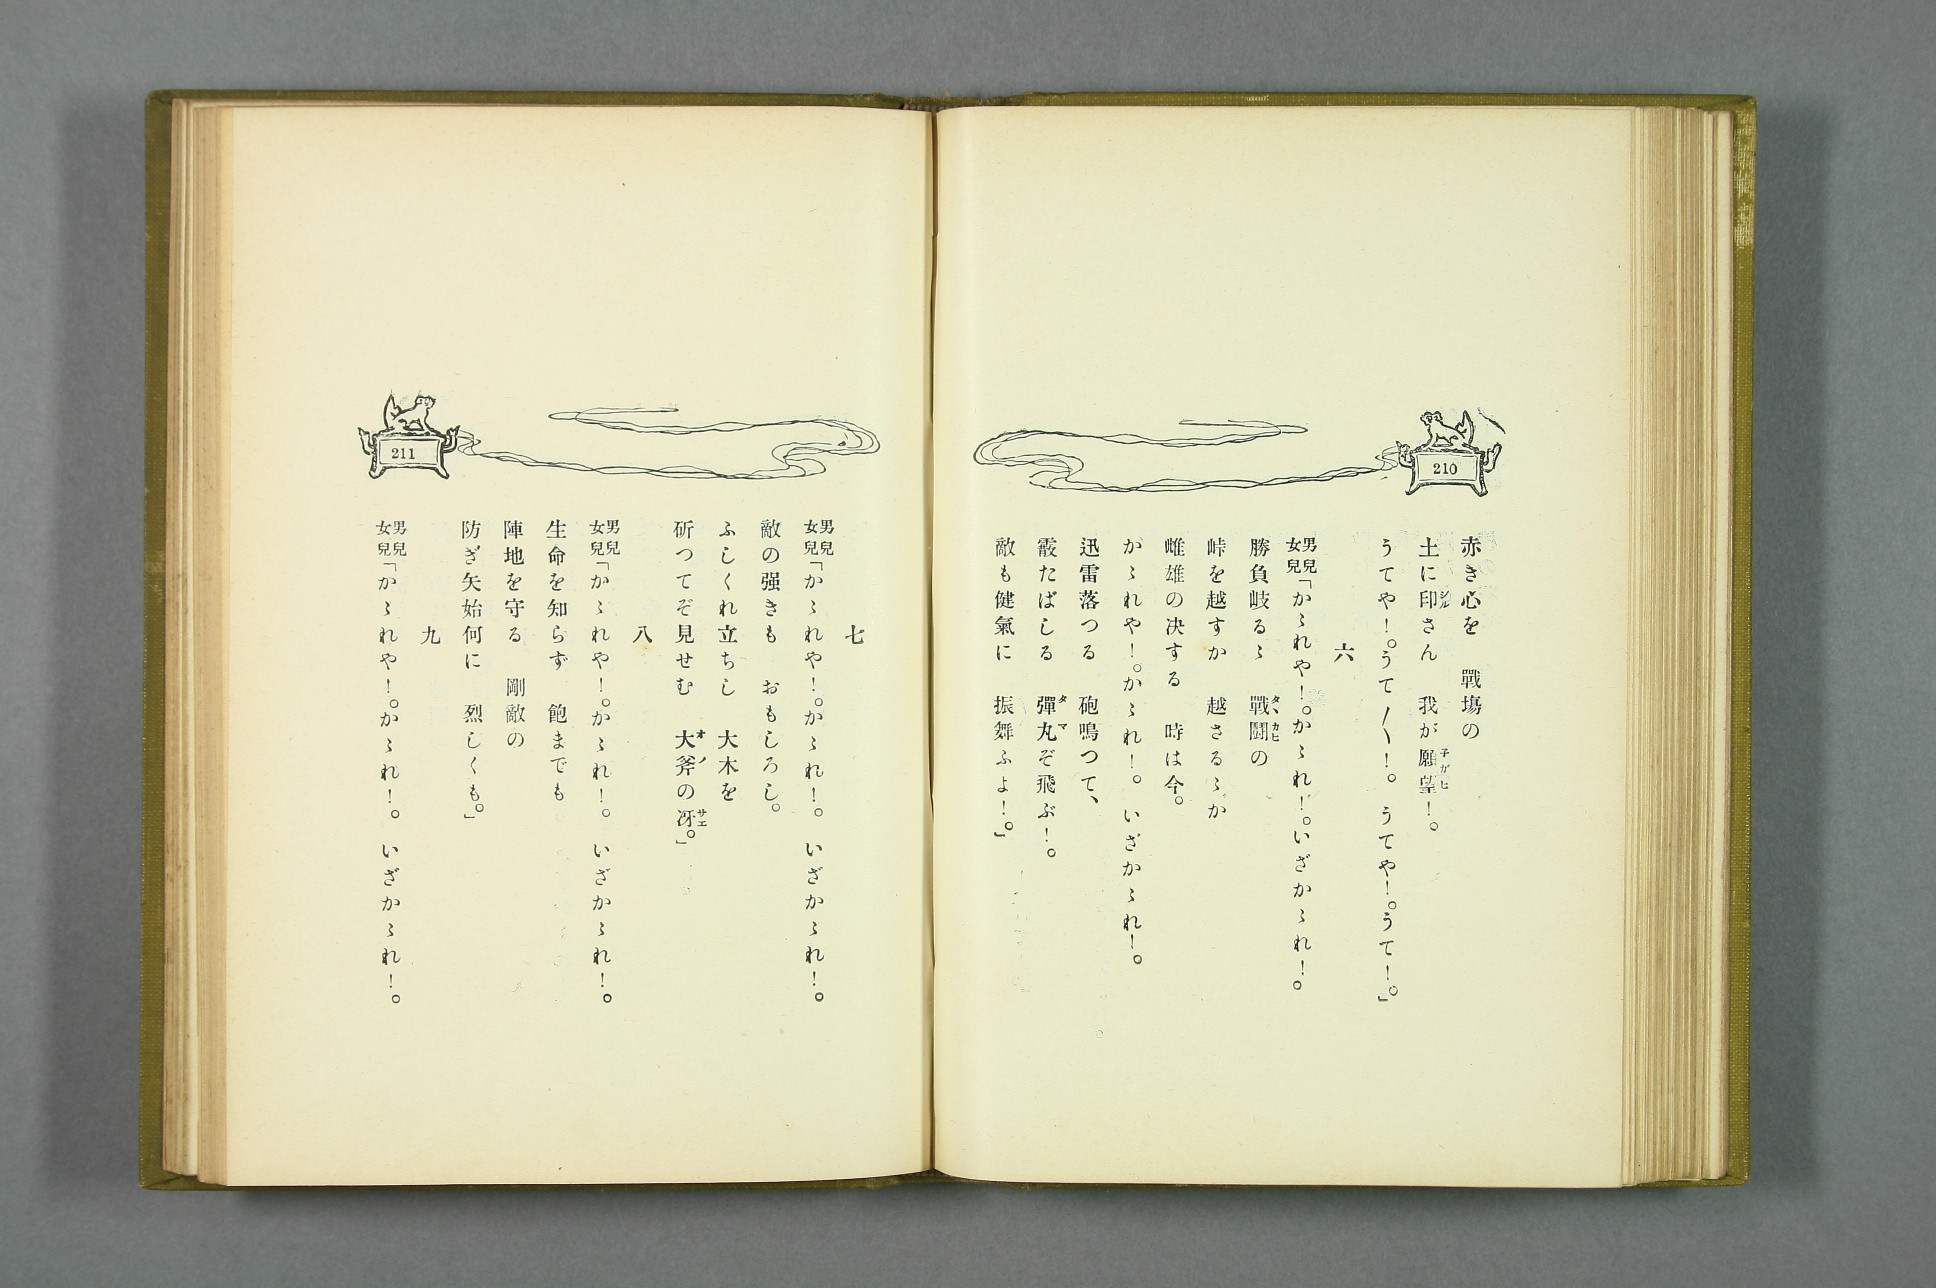 210
赤き心を　戰塲の
土に印さん　我が願望！。
うてや！。うて〳〵！。　うてや！。うて！。」
六
男兒女兒「かゝれや！。かゝれ！。いざかゝれ！。
勝負岐るゝ　戰鬪の
峠を越すか　越さるゝか
雌雄の决する　時は今。
かゝれや！。かゝれ！。　いざかゝれ！。
迅雷落つる　砲鳴つて、
霰たばしる　彈丸ぞ飛ぶ！。
敵も健氣に　振舞ふよ！。」
211
七
男兒女兒「かゝれや！。かゝれ！。　いざかゝれ！。
敵の强きも　おもしろし。
ふしくれ立ちし　大木を
斫つてぞ見せむ　大斧の冴。」
八
男兒女兒「かゝれや！。かゝれ！。　いざかゝれ！。
生命を知らず　飽までも
陣地を守る　剛敵の
防ぎ矢始何に　烈しくも。」
九
男兒女兒「かゝれや！。かゝれ！。　いざかゝれ！。